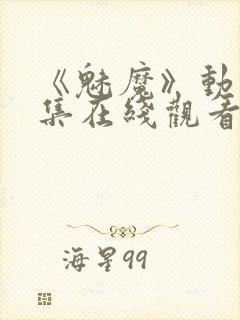 《魅魔》動
集在綫觀看
海星99